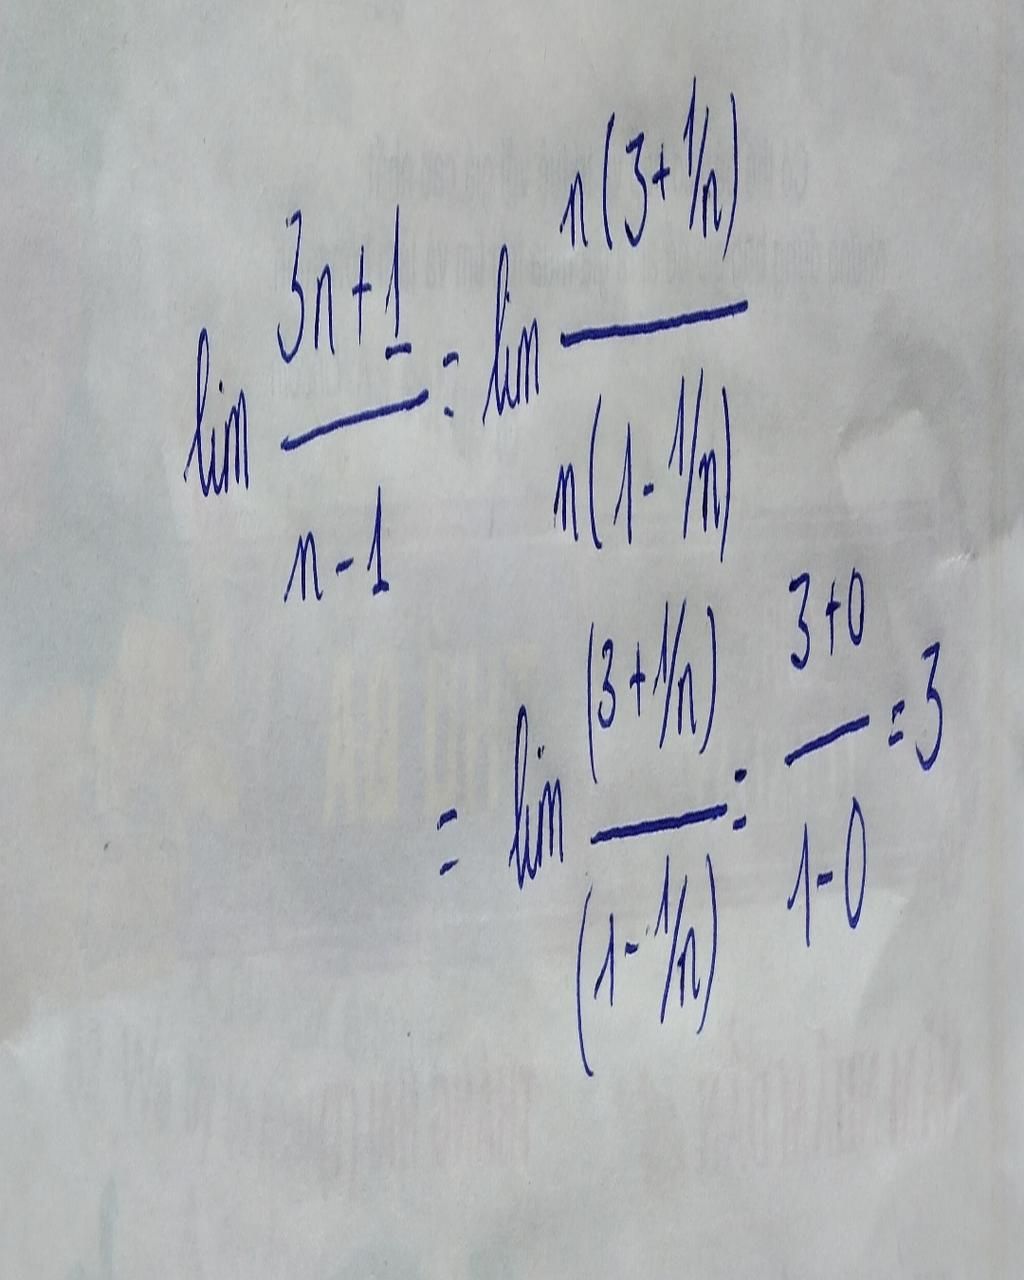 lim (3n+1)/(n-1) = lim n(3+1/n)/n(1-1/n)
= lim (3+1/n)/(1-1/n) = (3+0)/(1-0) = 3